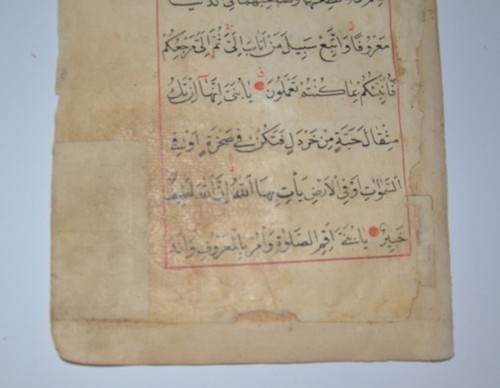 فلا تطعهما وصاحبهما في الدنيا
معروفا واتبع سبيل من اناب الي ثم الي مرجعكم
فانبئكم بما كنتم تعملون يا بني انها ان تك
مثقال حبة من خردل فتكن في صخرة او في
السموات او في الارض يات بها الله ان الله لطيف
خبير يا بني اقم الصلوة وامر بالمعروف وانه